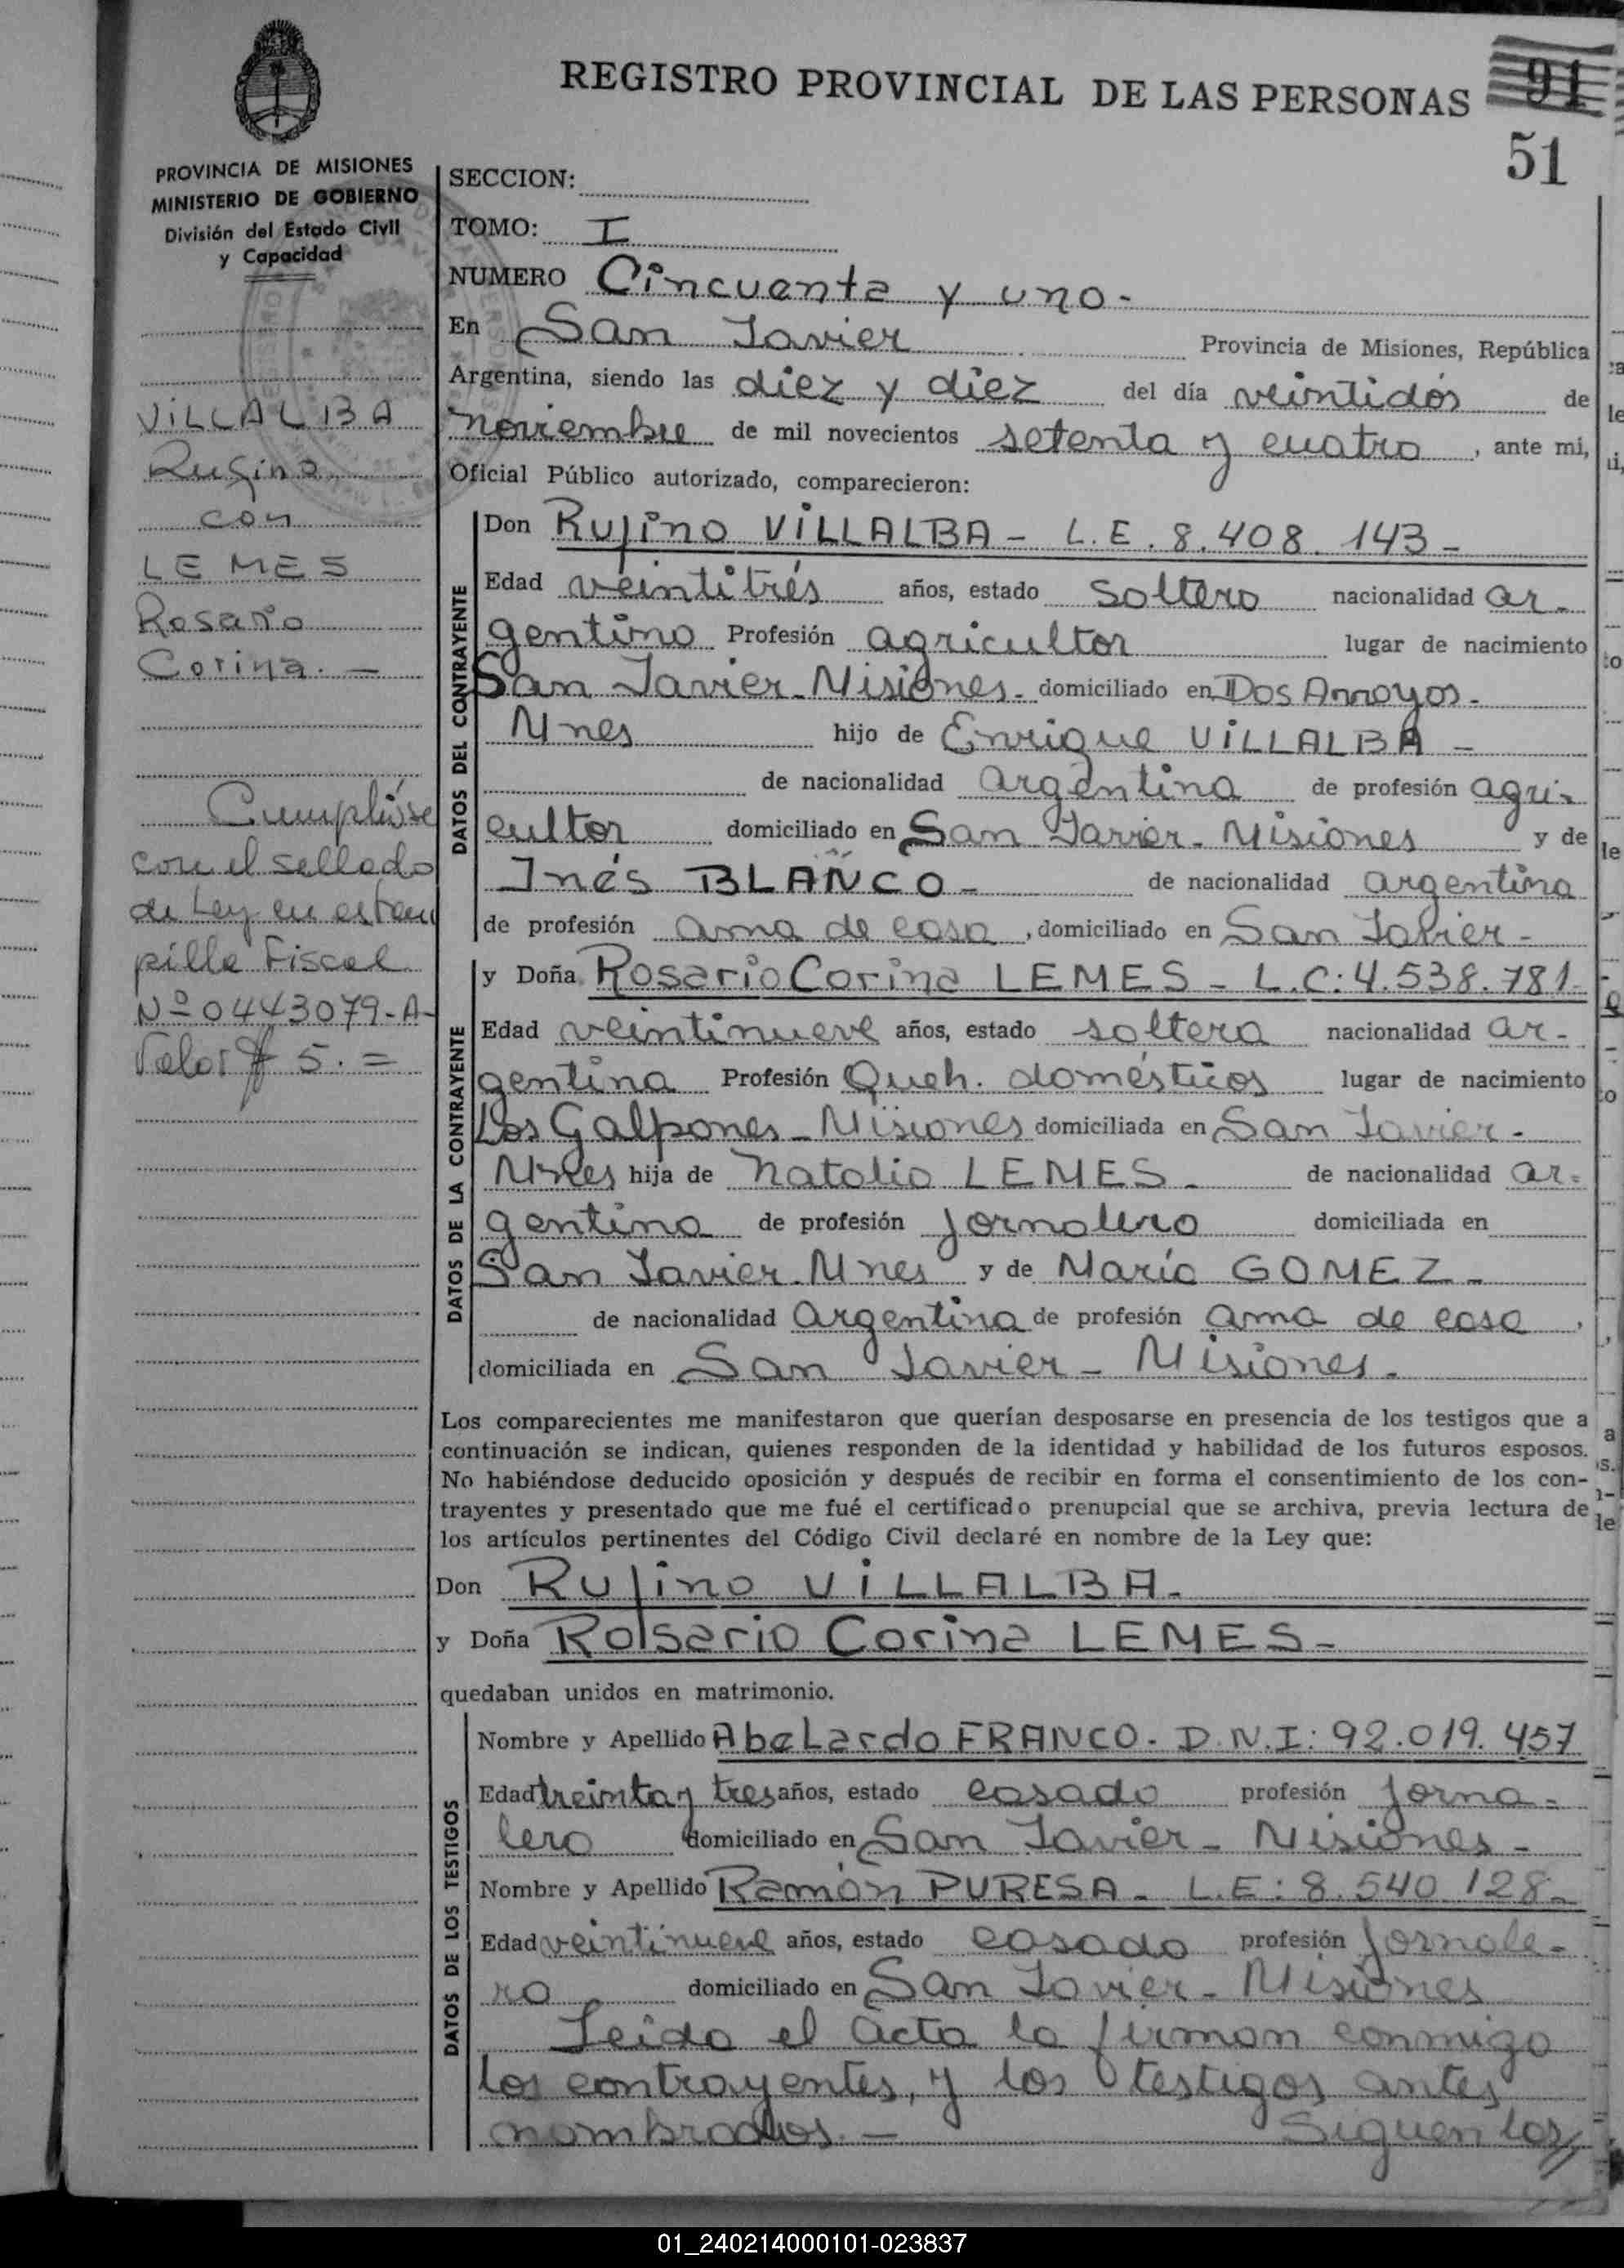 REGISTRO PROVINCIAL DE LAS PERSONAS
91
51
PROVINCIA DE MISIONES
MINISTERIO DE GOBIERNO
División del Estado Civil
y Capacidad
VILLALBA
Rufino
con
LEMES
Rosario
Corina. -
Cumplióse
con el sellado
de Ley en estam
pilla Fiscal
Nº 0443079-A-
Valor $ 5. =
SECCION:
TOMO: I
NUMERO Cincuenta y uno-
En San Javier Provincia de Misiones, República
Argentina, siendo las diez y diez del día veintidós de
noviembre de mil novecientos setenta y cuatro, ante mi,
Oficial Público autorizado, comparecieron:
DATOS DEL CONTRAYENTE
Don Rufino VILLALBA - L.E. 8.408.143-
Edad veintitrés años, estado soltero nacionalidad ar-
gentino Profesión agricultor lugar de nacimiento
San Javier-Misiones- domiciliado en Dos Arroyos-
Mnes hijo de Enrique VILLALBA -
de nacionalidad argentina de profesión agri-
cultor domiciliado en San Javier-Misiones y de
Inés BLANCO- de nacionalidad argentina
de profesión ama de casa, domiciliado en San Javier-
DATOS DE LA CONTRAYENTE
y Doña Rosario Corina LEMES - L.C: 4.538.781-
Edad veintinueve años, estado soltera nacionalidad ar-
gentina Profesión Queh. domésticos lugar de nacimiento
Los Galpones-Misiones domiciliada en San Javier-
Mnes hija de Natalio LEMES- de nacionalidad ar-
gentina de profesión jornalero domiciliada en
San Javier-Mnes y de María GOMEZ-
de nacionalidad argentina de profesión ama de casa,
domiciliada en San Javier-Misiones-
Los comparecientes me manifestaron que querían desposarse en presencia de los testigos que a
continuación se indican, quienes responden de la identidad y habilidad de los futuros esposos.
No habiéndose deducido oposición y después de recibir en forma el consentimiento de los con-
trayentes y presentado que me fué el certificado prenupcial que se archiva, previa lectura de
los artículos pertinentes del Código Civil declaré en nombre de la Ley que:
Don Rufino VILLALBA-
y Doña Rosario Corina LEMES-
quedaban unidos en matrimonio.
DATOS DE LOS TESTIGOS
Nombre y Apellido Abelardo FRANCO- D.N.I: 92.019.457
Edad treinta y tres años, estado casado profesión jorna-
lero domiciliado en San Javier-Misiones-
Nombre y Apellido Ramón PURESA- L.E: 8.540.128-
Edad veintinueve años, estado casado profesión jornale-
ro domiciliado en San Javier-Misiones
Leida el acta la firman conmigo
los contrayentes, y los testigos antes
nombrados.- Siguen las//
01_240214000101-023837